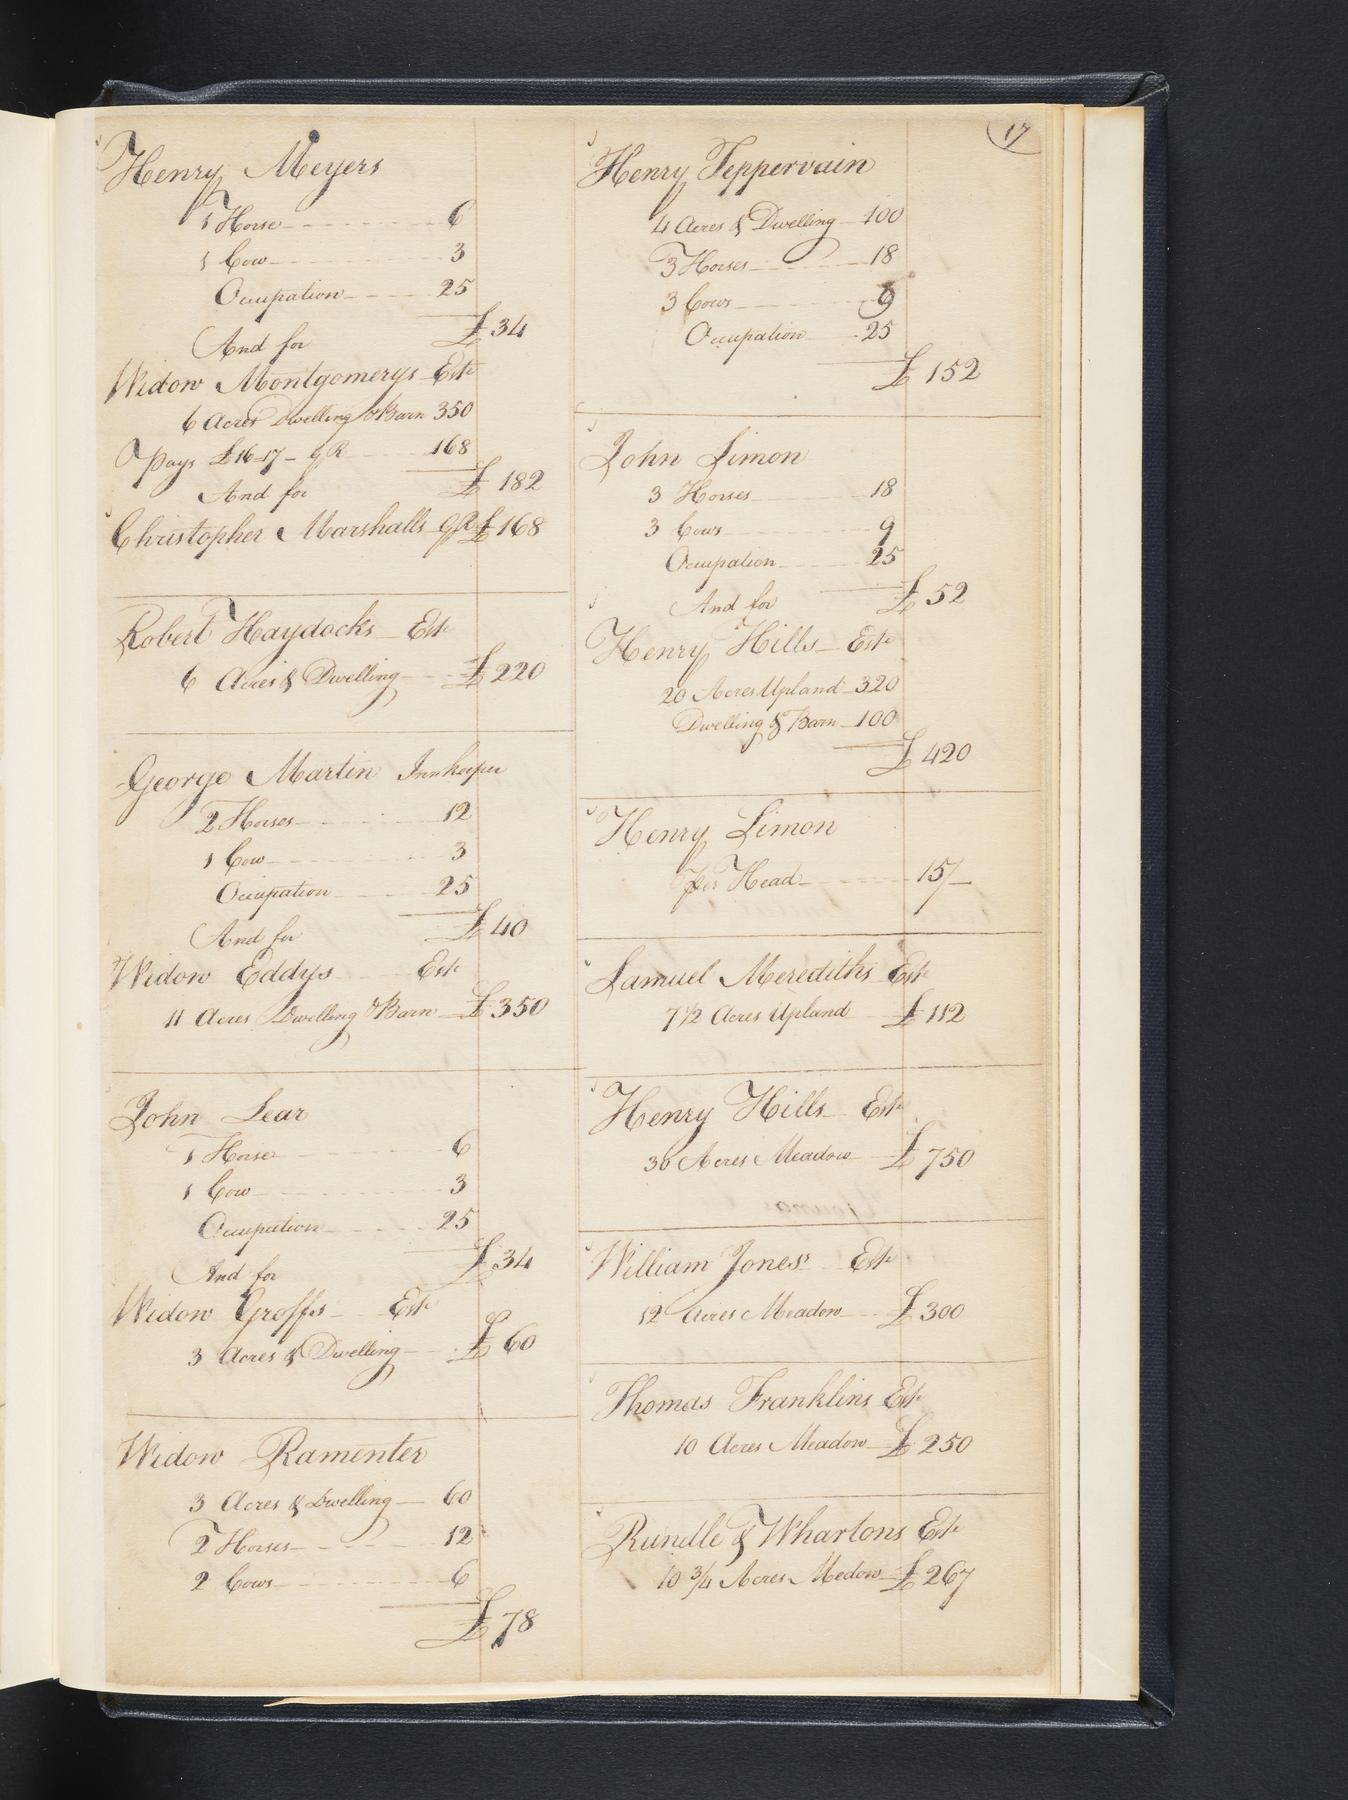 17
Henry Meyers
1 Horse 6
1 Cow 3
Occupation 25
£ 34
And for
Widow Montgomerys Este
6 Acres Dwelling & Barn 350
Pays £16-17- GR 168
£ 182
And for
Christopher Marshalls GR £ 168
Robert Haydocks Este
6 Acres & Dwelling £ 220
George Martin Innkeeper
2 Horses 12
1 Cow 3
Occupation 25
£ 40
And for
Widow Eddys Este
11 Acres Dwelling & Barn £ 350
John Lear
1 Horse 6
1 Cow 3
Occupation 25
£ 34
And for
Widow Groffs Este
3 Acres & Dwelling £ 60
Widow Ramenter
3 Acres & Dwelling 60
2 Horses 12
2 Cows 6
£ 78
Henry Teppervain
4 Acres & Dwelling 100
3 Horses 18
3 Cows 9
Occupation 25
£ 152
John Limon
3 Horses 18
3 Cows 9
Occupation 25
£ 52
And for
Henry Hills Este
20 Acres Upland 320
Dwelling & Barn 100
£ 420
Henry Limon
Per Head 15/
Samuel Merediths Este
7 1/2 Acres Upland £ 112
Henry Hills Este
30 Acres Meadow £ 750
William Jones' Este
12 Acres Meadow £ 300
Thomas Franklins Este
10 Acres Meadow £ 250
Rundle & Whartons Este
10 3/4 Acres Medow £ 267